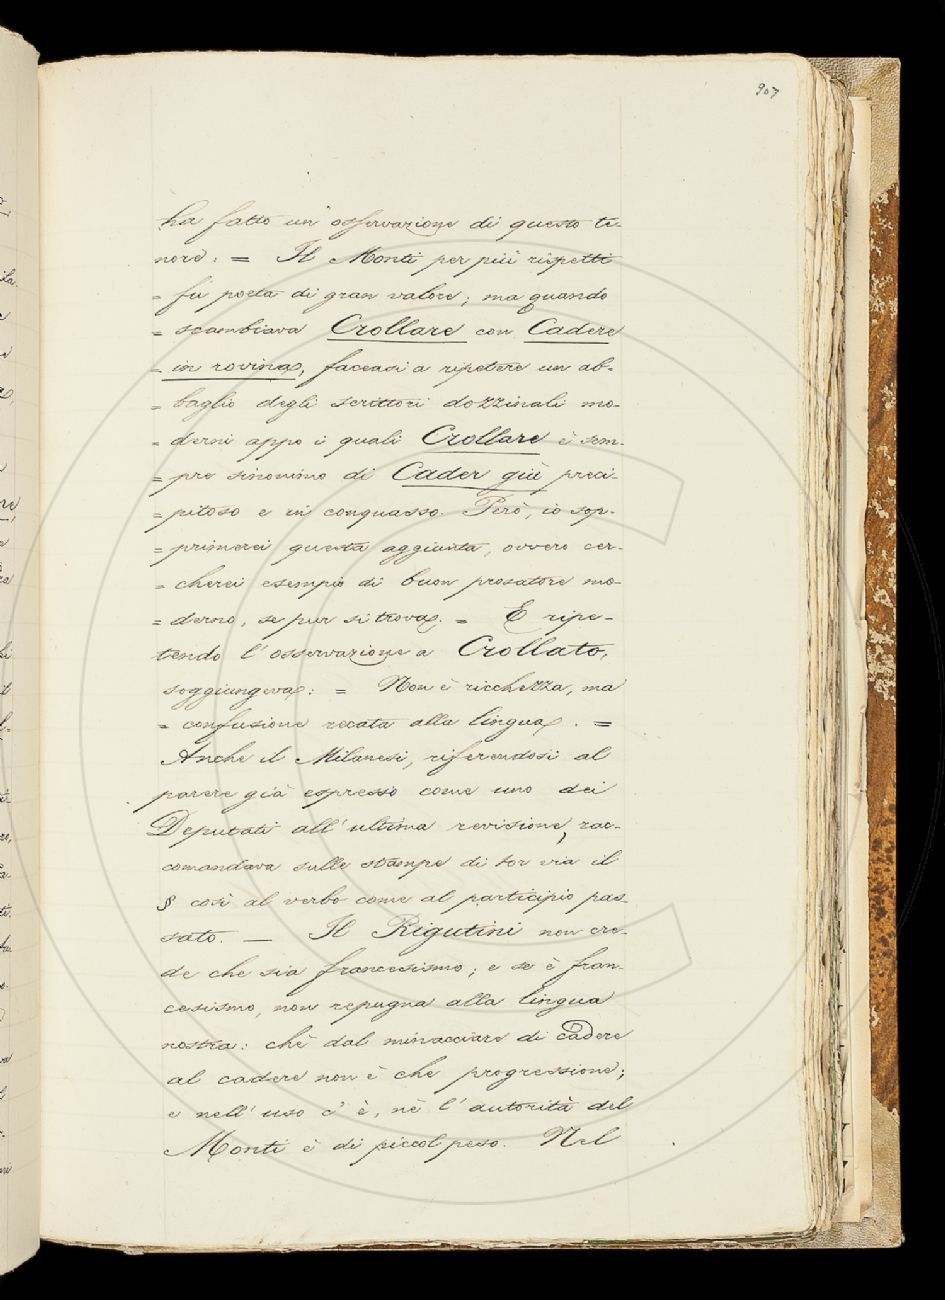 907
ha fatto un' osservazione di questo te-
nore: = Il Monti per più rispetti
= fu poeta di gran valore; ma quando
= scambiava Crollare con Cadere
= in rovina, faceasi a ripetere un ab-
= baglio degli scrittori dozzinali mo-
= derni appo i quali Crollare è sem-
= pre sinonimo di Cader giù preci-
= pitoso e in conquasso. Però, io sop-
= primerei questa aggiunta, ovvero cer-
= cherei esempio di buon prosatore mo-
= derno, se pur si trova. = E ripe-
tendo l'osservazione a Crollato,
soggiungeva: = Non è ricchezza, ma
= confusione recata alla lingua. =
Anche il Milanesi, riferendosi al
parere già espresso come uno dei
Deputati all'ultima revisione, rac-
comandava sulle stampe di tor via il
§ così al verbo come al participio pas
sato. — Il Rigutini non cre-
de che sia francesismo; e se è fran-
cesismo, non repugna alla lingua
nostra: chè dal minacciare di cadere
al cadere non è che progressione;
e nell'uso c'è, nè l'autorità del
Monti è di piccol peso. Nel